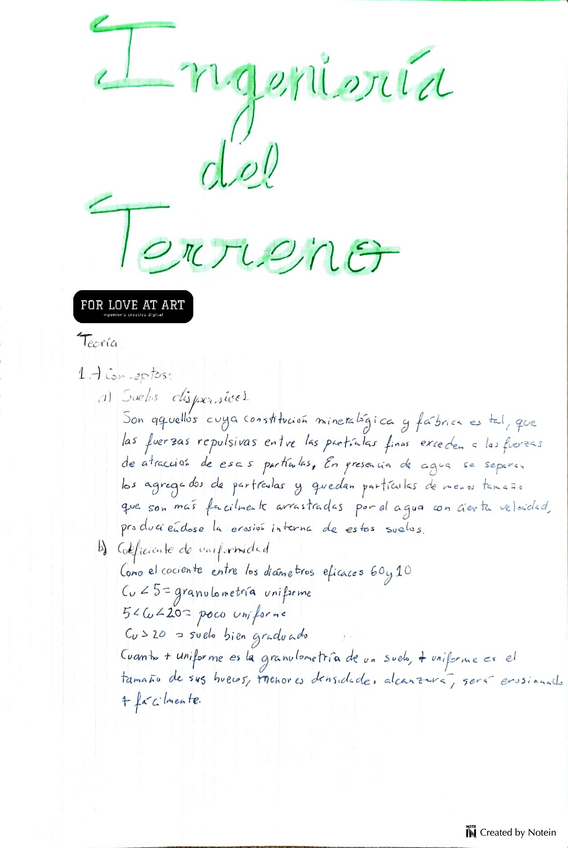 Ingeniería
del
Terreno
FOR LOVE AT ART
ingeniería creativa digital
Teoría
1.-) Conceptos:
a) Suelos dispersivos
Son aquellos cuya constitución mineralógica y fábrica es tal, que
las fuerzas repulsivas entre las partículas finas exceden a las fuerzas
de atracción de esas partículas, En presencia de agua se separan
los agregados de partículas y quedan partículas de menos tamaño
que son más facilmente arrastradas por el agua con cierta velocidad,
produciéndose la erosión interna de estos suelos.
b) Coeficiente de uniformidad
Como el cociente entre los diámetros eficaces 60 y 10
Cu < 5 = granulometría uniforme
5 < Cu < 20 = poco uniforme
Cu > 20 = suelo bien graduado
Cuanto + uniforme es la granulometría de un suelo, + uniforme es el
tamaño de sus huecos, menores densidades alcanzará, será erosionado
+ fácilmente.
NOTE IN Created by Notein